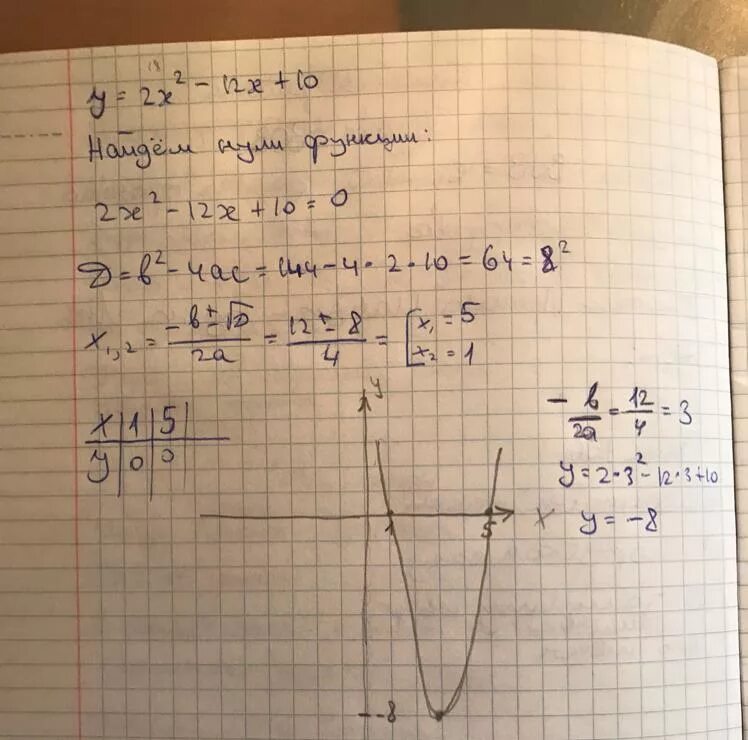 y = 2x² - 12x + 10
Найдём нули функции:
2x² - 12x + 10 = 0
D = b² - 4ac = 144 - 4 · 2 · 10 = 64 = 8²
x₁,₂ = (-b ± √D)/(2a) = (12 ± 8)/4 = [x₁ = 5
x₂ = 1
x | 1 | 5
y | 0 | 0
y
-b/(2a) = 12/4 = 3
y = 2 · 3² - 12 · 3 + 10
y = -8
1
5
x
-8